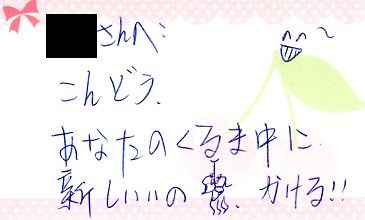 さんへ:
こんどう、
あなたのくるま中に
新しいいの、かける!!